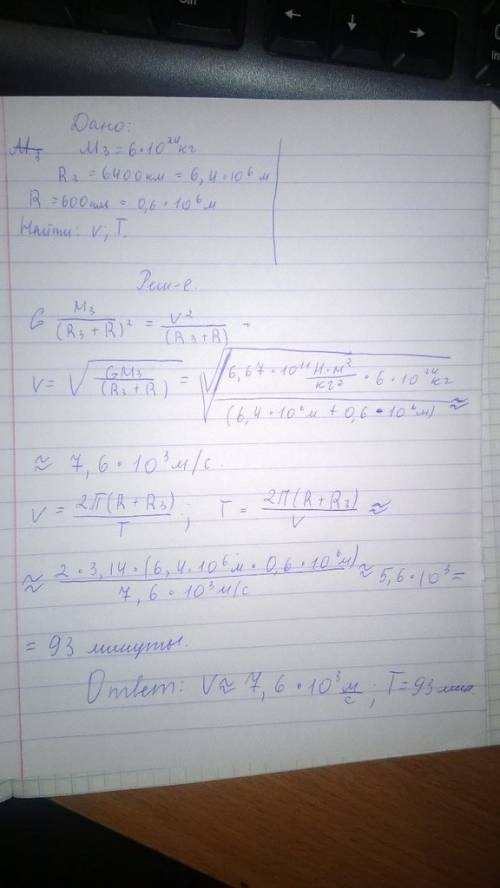 Дано:
M₃ M₃ = 6·10²⁴ кг
R₃ = 6400 км = 6,4·10⁶ м
R = 600 км = 0,6·10⁶ м
Найти: v; T.
Реш-е.
G M₃/(R₃+R)² = v²/(R₃+R) -
V = √(GM₃/(R₃+R)) = √(6,67·10¹¹ Н·м²/кг² · 6·10²⁴ кг/(6,4·10⁶ м + 0,6·10⁶ м)) ≈
≈ 7,6·10³ м/с.
V = 2π(R+R₃)/T; T = 2π(R+R₃)/V ≈
≈ 2·3,14·(6,4·10⁶ м · 0,6·10⁶ м)/7,6·10³ м/с ≈ 5,6·10³ =
= 93 минуты.
Ответ: V ≈ 7,6·10³ м/с; T = 93 мин